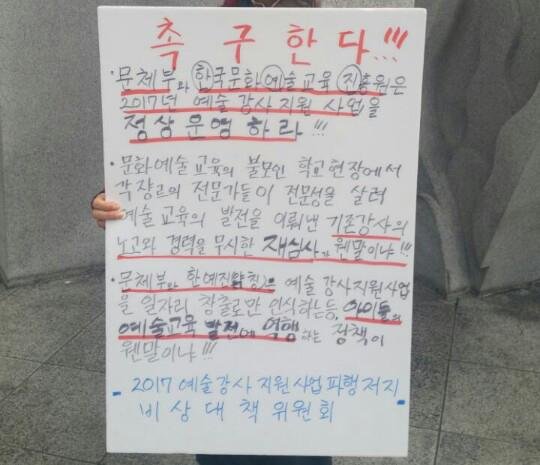 촉구한다...!!!
· 문체부와 한국문화예술교육진흥원은
2017년 예술강사지원 사업을
정상운영하라 !!!
· 문화예술교육의 불모인 학교현장에서
각쟝르의 전문가들이 전문성을 살려
예술교육의 발전을 이뤄낸 기존강사의
노고와 경력을 무시한 재심사가 웬말이냐!!!
· 문체부와 한예진(약칭)는 예술강사지원사업
을 일자리 창출로만 인식하는등, 아이들의
예술교육 발전에 역행하는 정책이
웬말이냐!!!
- 2017 예술강사지원사업파행저지
비상대책위원회 -